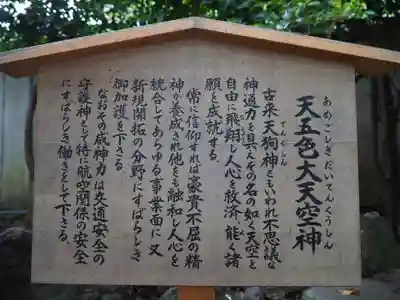 あめごしきだいてんくうしん
天五色大天空神
てんぐしん
古来天狗神ともいわれ不思議な
神通力を具えその名の如く天空を
自由に飛翔し人心を救済 能く諸
願を成就する
常に信仰すれば豪貴不屈の精
神が養成され他をも融和し人心を
統合してあらゆる事業面に又
新規開拓の分野にすばらしき
御加護を下さる
なおその威神力は交通安全の
守護神として特に航空関係の安全
にすばらしき働きをして下さる